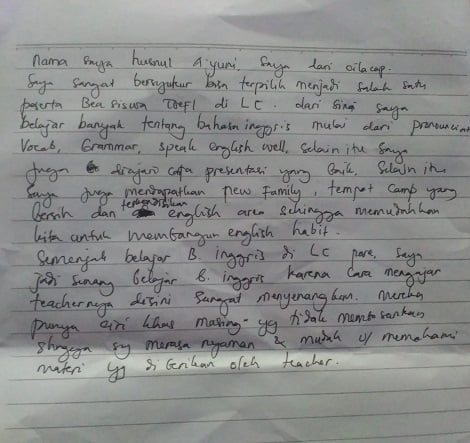 Nama saya husnul a'yuni, saya dari cilacap.
saya sangat bersyukur bisa terpilih menjadi salah satu
peserta Bea siswa TOEFL di LC. dari sini saya
belajar banyak tentang bahasa inggris mulai dari pronounciat
Vocab, Grammar, speak english well, selain itu saya
juga diajari cara presentasi yang baik, selain itu
saya juga mendapatkan new family, tempat camp yang
bersih dan english area sehingga memudahkan
kita untuk membangun english habit.
Semenjak belajar B. inggris di LC pare, saya
jadi senang belajar B. inggris karena cara mengajar
teachernya disini sangat menyenangkan. mereka
punya ciri khas masing" yg tidak membosankan
shngga sy merasa nyaman & mudah u/ memahami
materi yg diberikan oleh teacher.